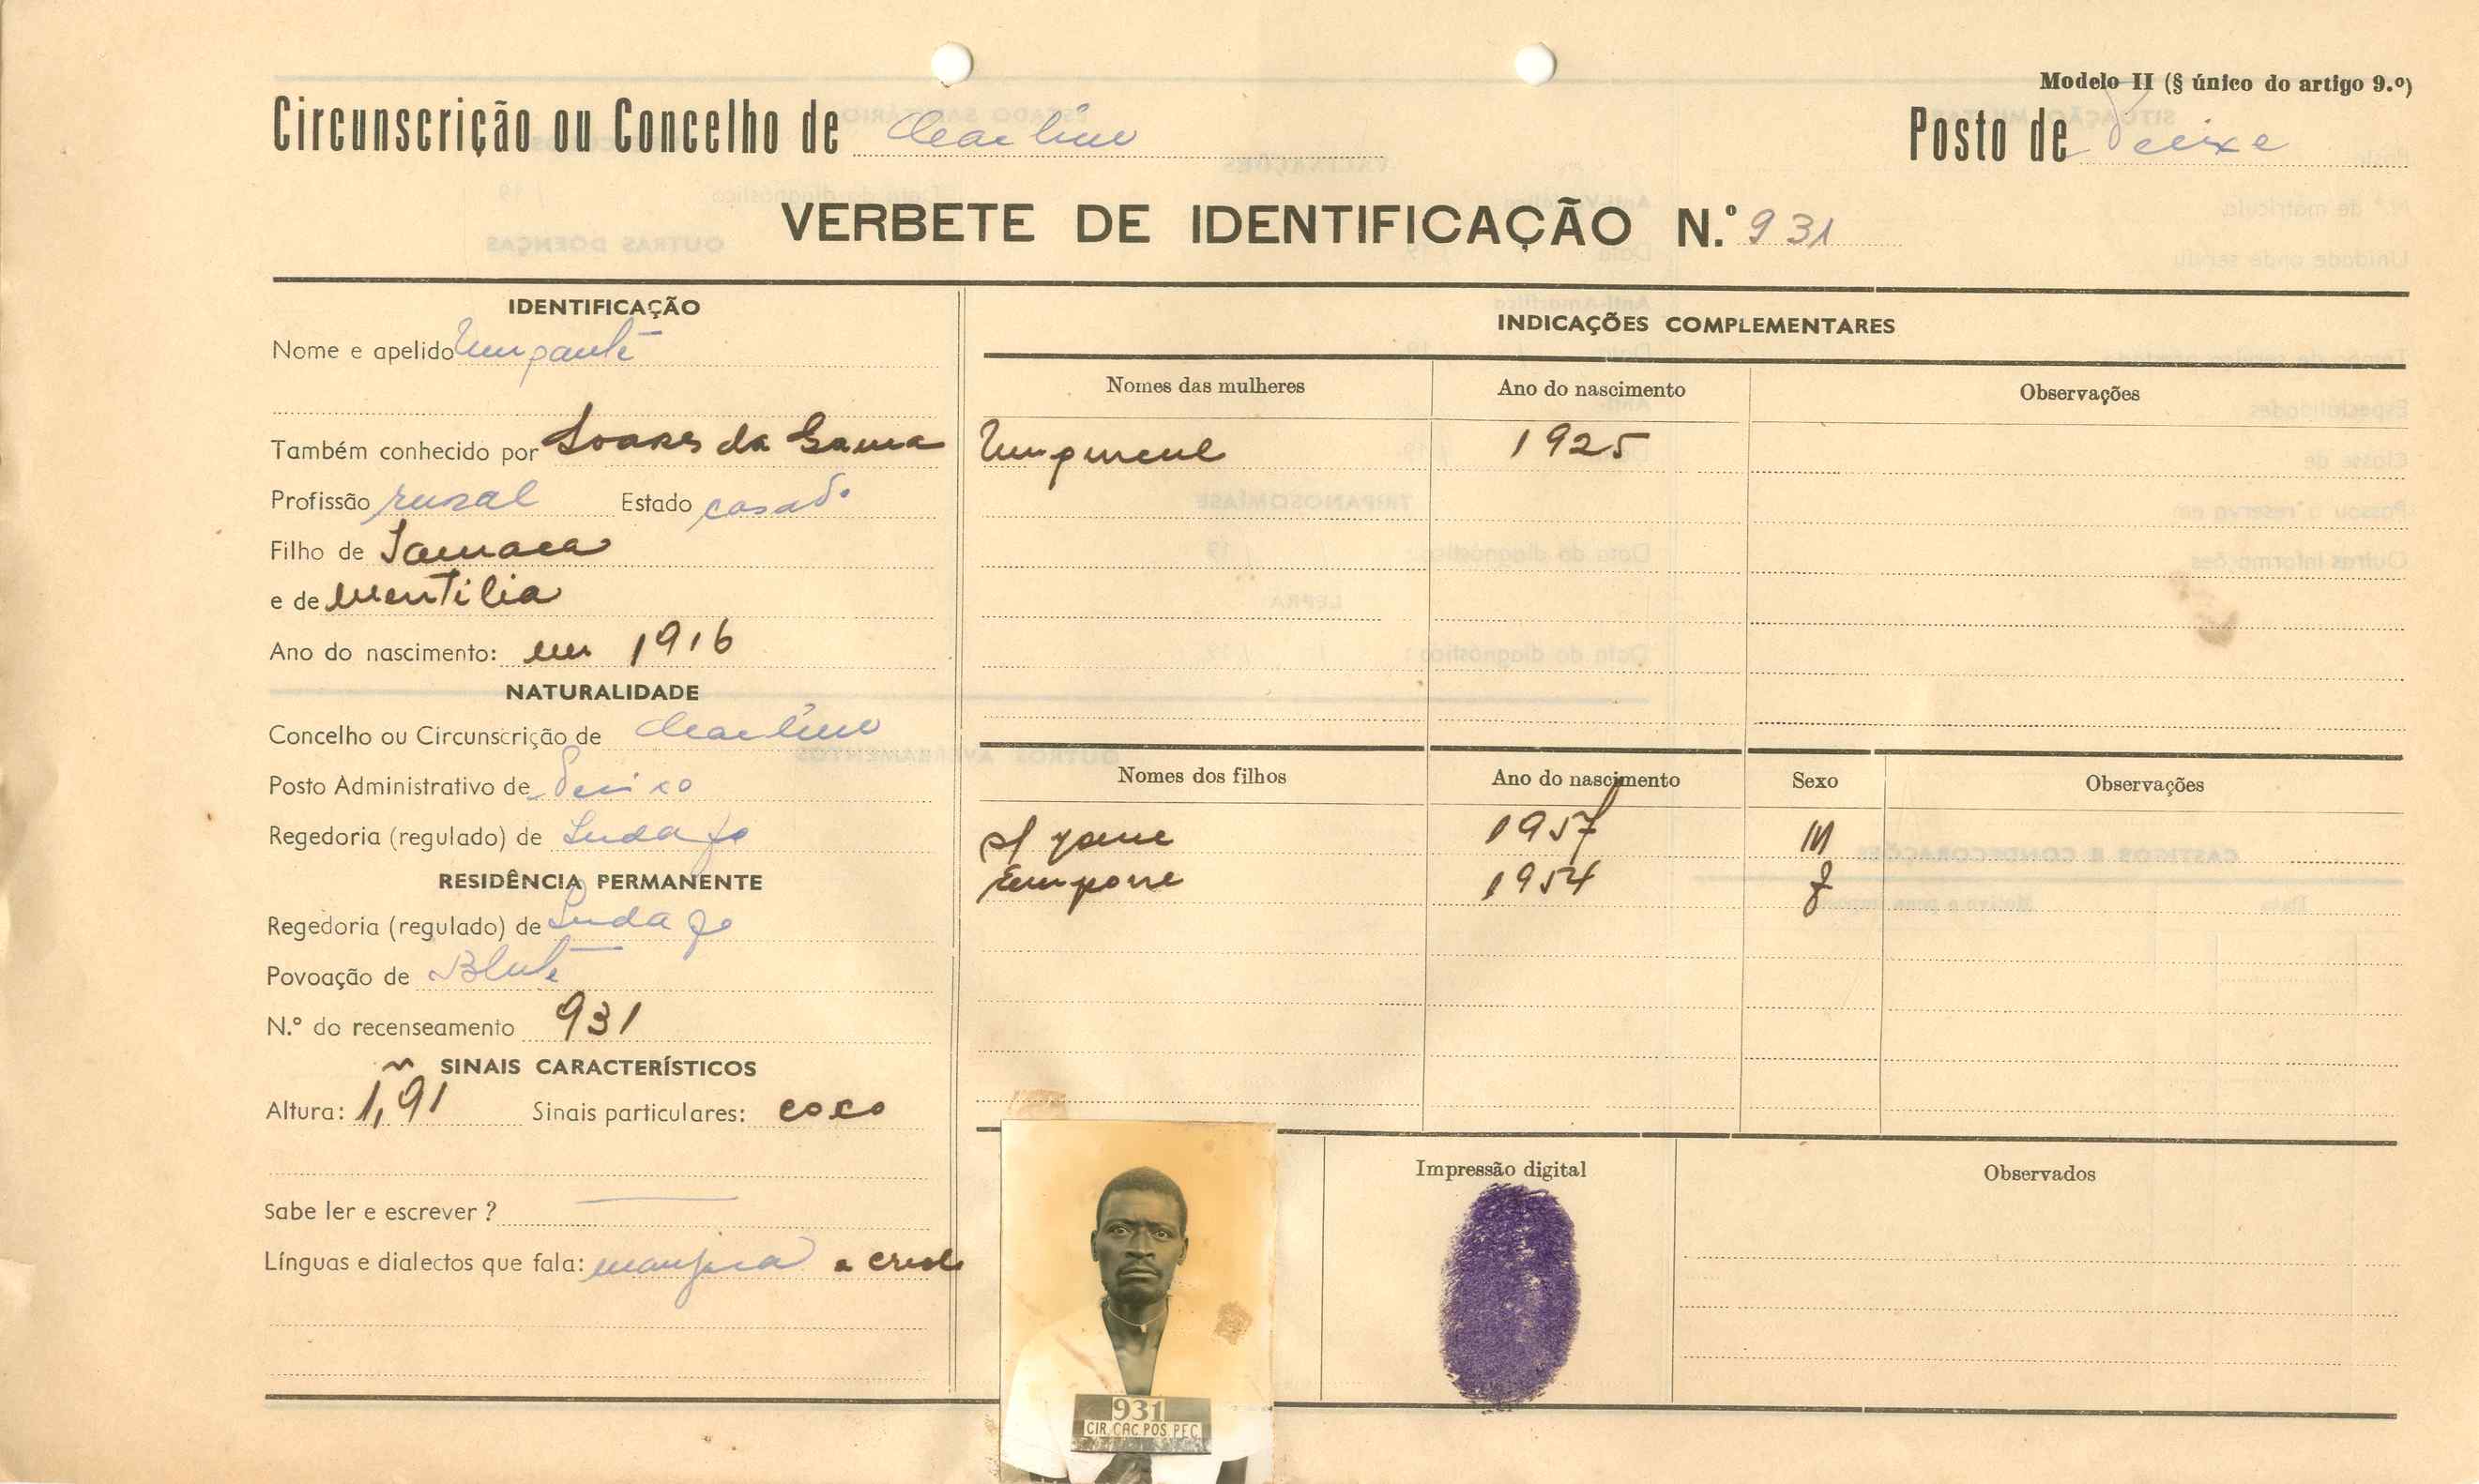 Modelo II (§ único do artigo 9.º)
Circunscrição ou Concelho de
Posto de
VERBETE DE IDENTIFICAÇÃO N.º 931
IDENTIFICAÇÃO
Nome e apelido
Também conhecido por Soares da Gama
Profissão rural Estado casado
Filho de
e de
Ano do nascimento: em 1916
NATURALIDADE
Concelho ou Circunscrição de
Posto Administrativo de
Regedoria (regulado) de
RESIDÊNCIA PERMANENTE
Regedoria (regulado) de
Povoação de
N.º do recenseamento 931
SINAIS CARACTERÍSTICOS
Altura: 1,91 Sinais particulares:
Sabe ler e escrever ?
Línguas e dialectos que fala:
INDICAÇÕES COMPLEMENTARES
Nomes das mulheres Ano do nascimento Observações
1925
Nomes dos filhos Ano do nascimento Sexo Observações
1957 M
1954 f
Impressão digital Observados
931
CIR CAC POS PEC